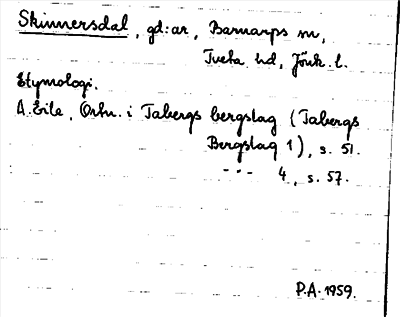 Skinnersdal, gd:ar, Barnarps sn,
Tveta hd, Jönk. l.
Etymologi.
A. Eile, Ortn. i Tabergs bergslag (Tabergs
Bergslag 1), s. 51.
-"- 4, s. 57.
P.A. 1959.